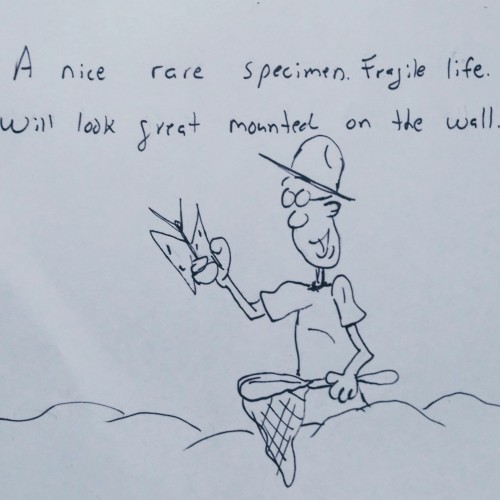 A nice rare specimen. Fragile life.
Will look great mounted on the wall.